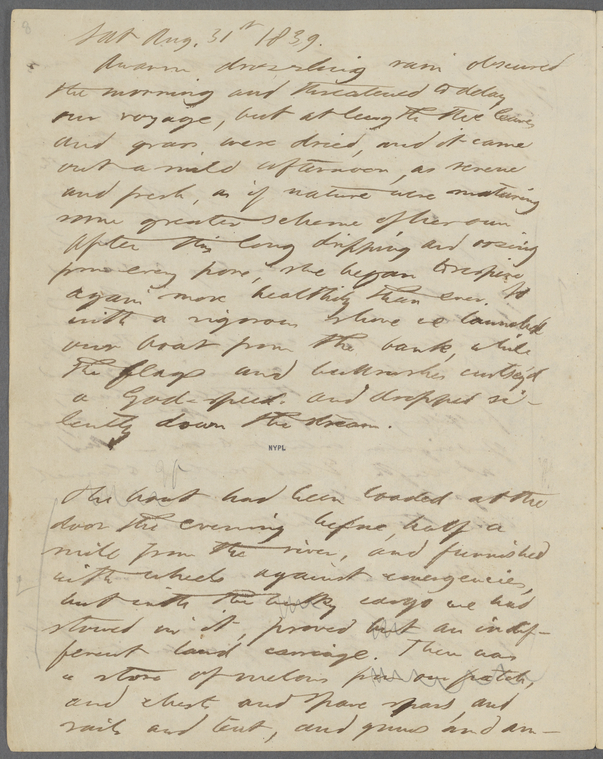 8
Sat Aug. 31st 1839.
A warm drizzling rain obscured
the morning and threatened to delay
our voyage, but at length the leaves
and grass were dried, and it came
out a mild afternoon, as serene
and fresh, as if nature were maturing
some greater scheme of her own
After this long dripping and oozing
from every pore, she began to respire
again more healthily than ever. So
with a vigorous shove we launched
our boat from the bank, while
the flags and bulrushes curtsey'd
a God-speed. and dropped si-
lently down the stream.
NYPL
The boat had been loaded at the
door the evening before, half a
mile from the river, and furnished
with wheels against emergencies,
but with the bulky cargo we had
stowed in it, proved but an indif-
ferent land carriage. There was
a store of melons from our patch,
and chest and spare spars, and
sails and tent, and guns and am-